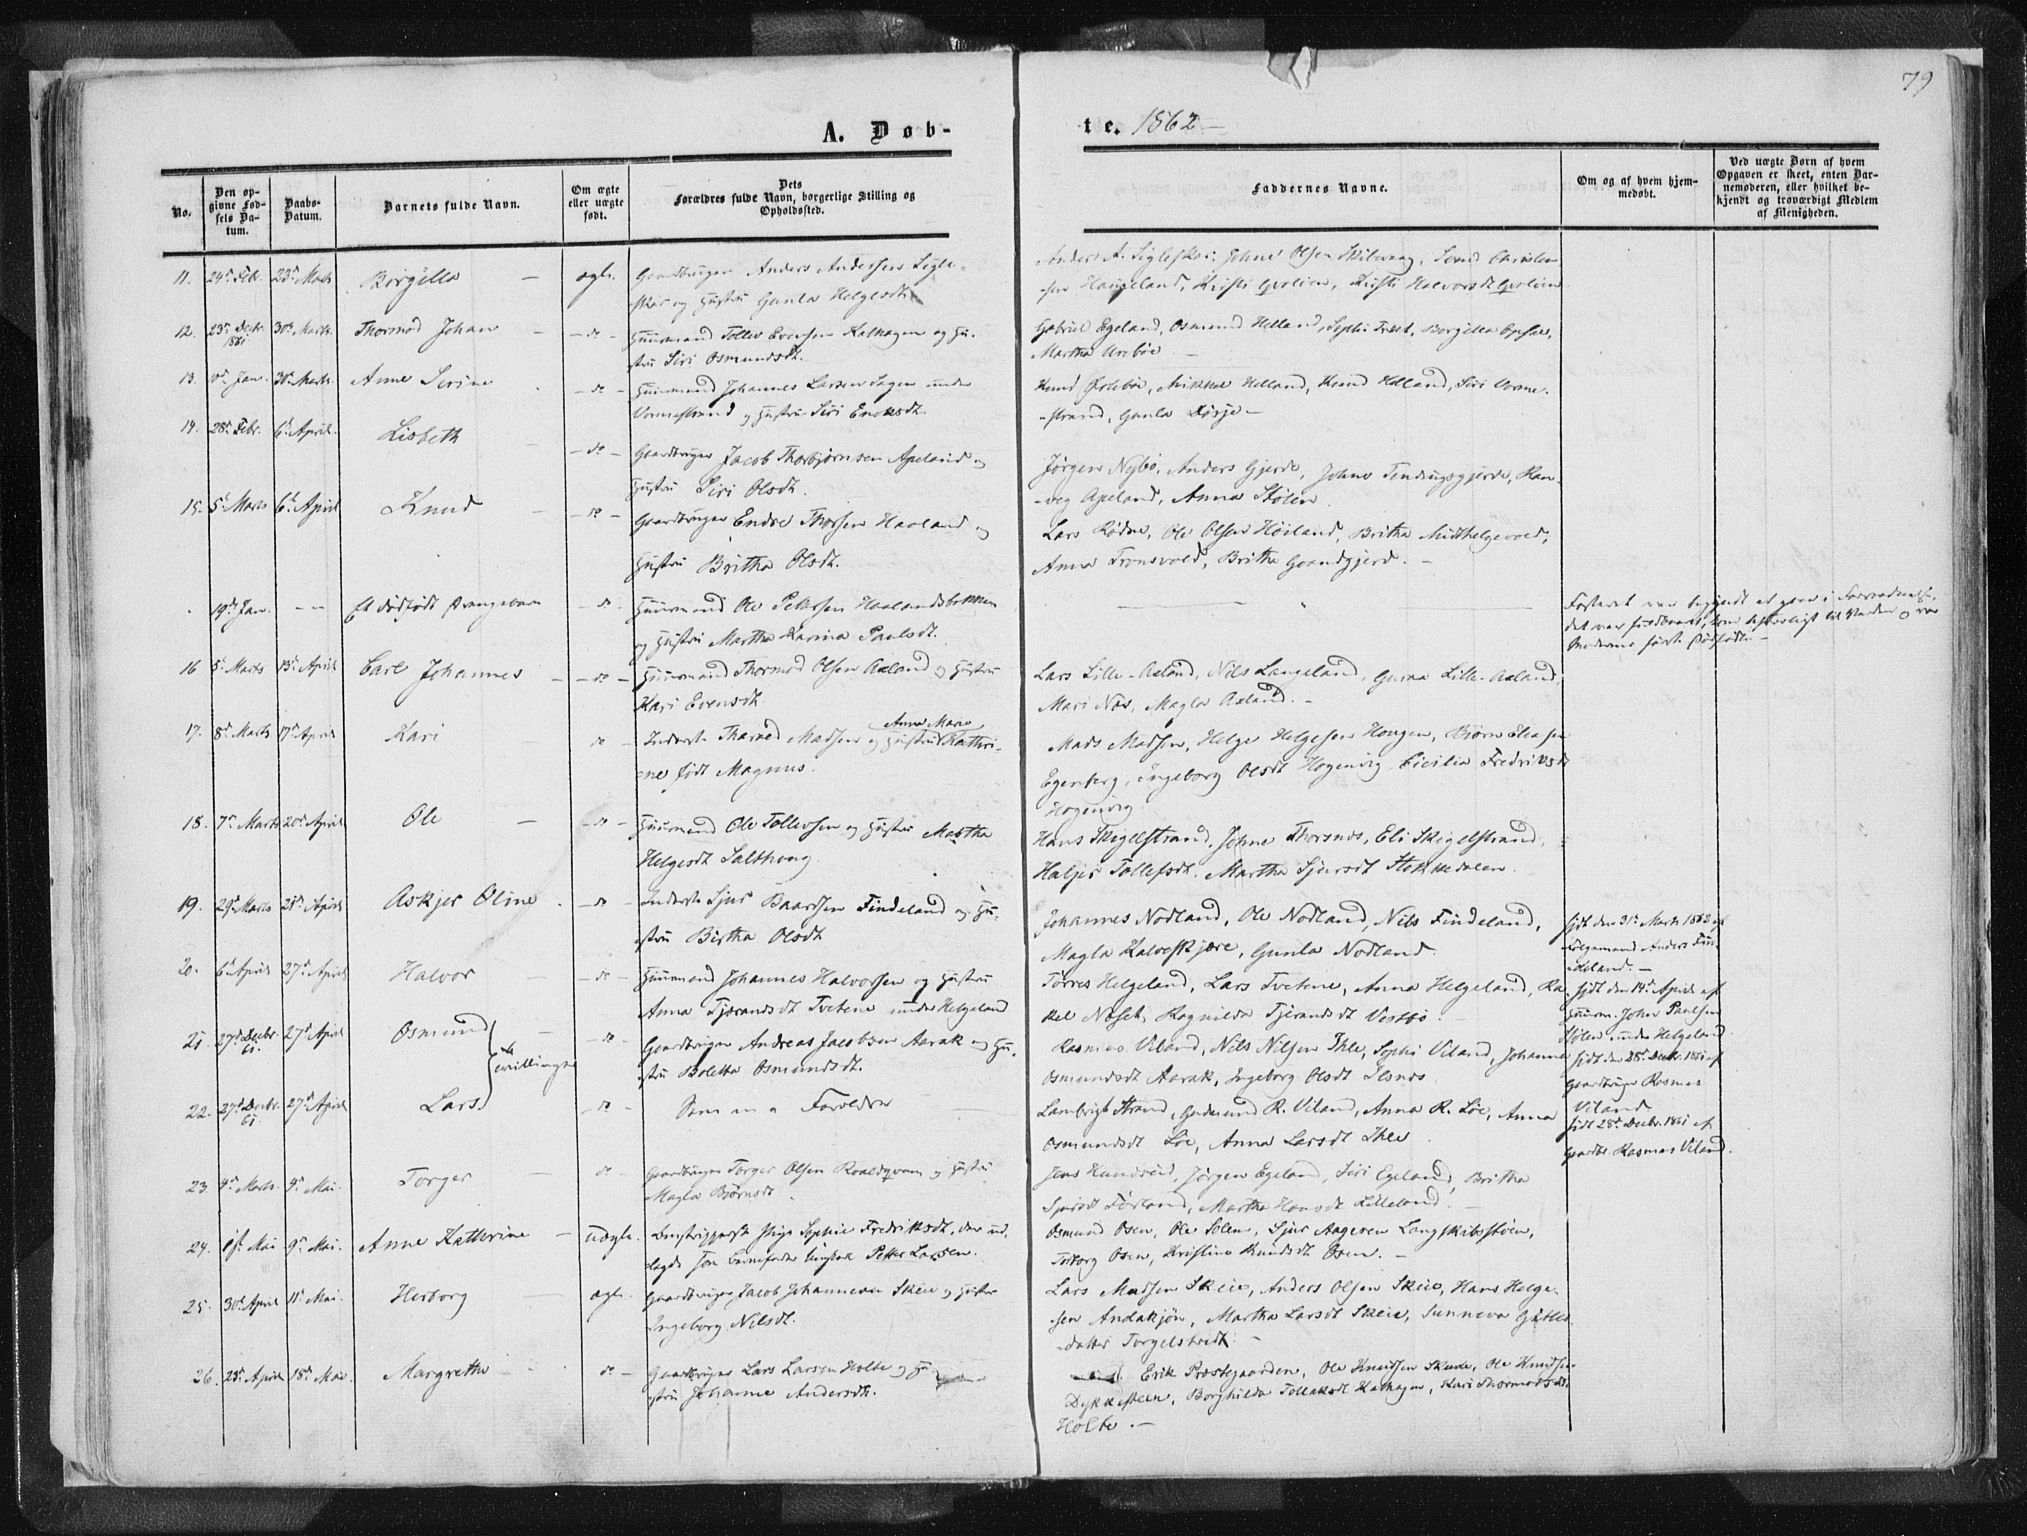 79
A. Døb-
te. 1862 -
No.
Den op-
givne Fød-
sels Da-
tum.
Daabs-
Datum.
Barnets fulde Navn.
Om ægte
eller uægte
født.
Dets
Forældres fulde Navn, borgerlige Stilling og
Opholdssted.
Faddernes Navne.
Om og af hvem hjem-
medøbt.
Ved uægte Børn af hvem
Opgaven er skeet, enten Bar-
nemoderen, eller hvilket be-
kjendt og troværdigt Medlem
af Menigheden.
11. 24de Febr. 23de Marts Borgilla - ægte. Gaardbruger Anders Andersen Sigle-
skar og Hustru Gunla Helgesdt.
Anders A. Sigleskar, Johne Olsen Skilvaag, Svend Christen-
sen Haugeland, Kristi Qvolien, Kristi Halvorsdt Qvolien
12. 23de Decbr. 1861 30te Marts. Thormod Johan - do - Huusmand Tollev Evensen Kalhagen og Hu-
stru Siri Osmundsdt.
Gabriel Egeland, Osmund Helland, Sophi Træet, Borgilla Opsal,
Martha Urebøe -
13. Jan. 30te Marts. Anne Serine - do - Huusmand Johannes Larsen Sagen under
Vormestrand og Hustru Siri Eriksdt.
Knud Helland, Mikkel Helland, Siri Vorme-
-strand, Gunla -
14. 28de Febr. 6te April. Lisbeth - do - Gaardbruger Jacob Thorbjørnsen Apeland og
Hustru Siri Olsdt.
Jørgen Nybø, Anders Gjerde, Johne Tendingsgjerde, Ran-
-veg Apeland, Anna Stølen
15. 5te Marts 6te April Knud - do - Gaardbruger Endre Thorsen Havland og
Hustru Britha Olsdt.
Lars Rødne, Ole Olsen Høiland, Britha Midthelgevold,
Anna Tronsvold, Britha Grandgjerd. -
19de Jan. - - Et dødfødt Drengebarn - do - Huusmand Ole Petersen Havlandsbakken
og Hustru Martha Karina Paulsdt.
Fosteret var begyndt at gaae i Forraadnelse,
det var fuldbaaret, kom til Verden og var
Moderens første Dødfødte. -
16 5te Marts 13de April Carl Johannes - do - Huusmand Thormod Olsen Aaland og Hustru
Kari Evensdt.
Lars Lille-Aaland, Nils Langeland, Lille-Aaland,
Mari Næs, Magla Aaland. -
17. 8de Marts 17de April Kari - do - Inderste Tharald Madsen og Hustru Anne Marie Kathri-
-ne født Magnus.
Mads Madsen, Helge Helgesen Hougen, Bjørn Eliasen
Egenberg, Ingeborg Olsdt Hogenvig Cicilia Fredriksdt
Hogenvig
18. 7de Marts 20de April Ole - do - Huusmand Ole Tollevsen og Hustru Martha
Helgesdt Salthoug
Hans Skigelstrand, Johne Thorsnes, Eli Skigelstrand,
Tollefsdt, Martha Sjursdt Stokkedalen.
19. 29de Marts 21de April Askjer Oline - do - Inderste Sjur Baardsen Findeland og Hu-
stru Birtha Olsdt
Johannes Nodland, Ole Nodland, Nils Findeland,
Magla Kalveskjære, Gunla Nodland.
hjdt den 31te Marts 1862 af
Følgemand Anders Fin-
-deland. -
20. 6te April 27de April Halvor - do - Huusmand Johannes Halvorsen og Hustru
Anna Tjerandsdt Tvetene under Helgeland
Tørres Helgeland, Lars Tvetene, Anna Helgeland, Ra-
kel Næset, Ragnilda Tjerandsdt Vestbø.
hjdt den 14de April af
Huusm. John Paulsen
Stølen under Helgeland
21 27de Decbr. 61. 27de April Osmund Tvillinger - do - Gaardbruger Andreas Jacobsen Aarak og Hu-
stru Boletta Osmundsdt.
Rasmus Viland, Nils Nilsen Thle, Sophi Viland, Johanne
Osmundsdt Aarak, Ingeborg Olsdt
hjdt den 28de Decbr. 1861 af
Gaardbruger Rasmus
Viland
22. 27de Decbr. 61. 27de April Lars - do - Som No 21 Forældre
Lambrigt Strand, Gudmund R. Viland, Anna R. Løe, Anna
Osmundsdt Løe, Anna Larsdt Thle
hjdt 28de Decbr. 1861 af
Gaardbr. Rasmus Viland.
23. 4de Marts 9de Mai. Torger - do - Gaardbruger Torger Olsen Roaldqvam og Hustru
Magla Bjørnsdt.
Jens Hundseid, Jørgen Egeland, Siri Egeland, Britha
Sjursdt Førland, Martha Hansdt Lilleland. -
24. 1ste Mai 9de Mai. Anne Kathrine - uægte. Pige Sophie Fredriksdt, der ud-
lagde som Barnefader Ungkarl Petter Larsen.
Osmund Osen, Ole Solem, Sjur Aagesen Langskibsstøen,
Osen, Kristine Knudsdt Osen. -
25. 30te April 11te Mai. Herborg - ægte. Gaardbruger Jacob Johannesen Skeie og Hustru
Ingeborg Nilsdt.
Lars Madsen Skeie, Anders Olsen Skeie, Hans Helge-
-sen Andakjøn, Martha Larsdt Skeie, Sunneva
-datter Torgelstveit. -
26. 23de April 18de Mai Margrethe - do - Gaardbruger Lars Larsen Holte og Hu-
stru Johanne Andersdt.
Erik Præstegaarden, Ole Knudsen Skeie, Ole Knudsen
Dykkesteen, Borghilda Tollaksdt Kalhagen, Kari Thormodsdt
Holte. -